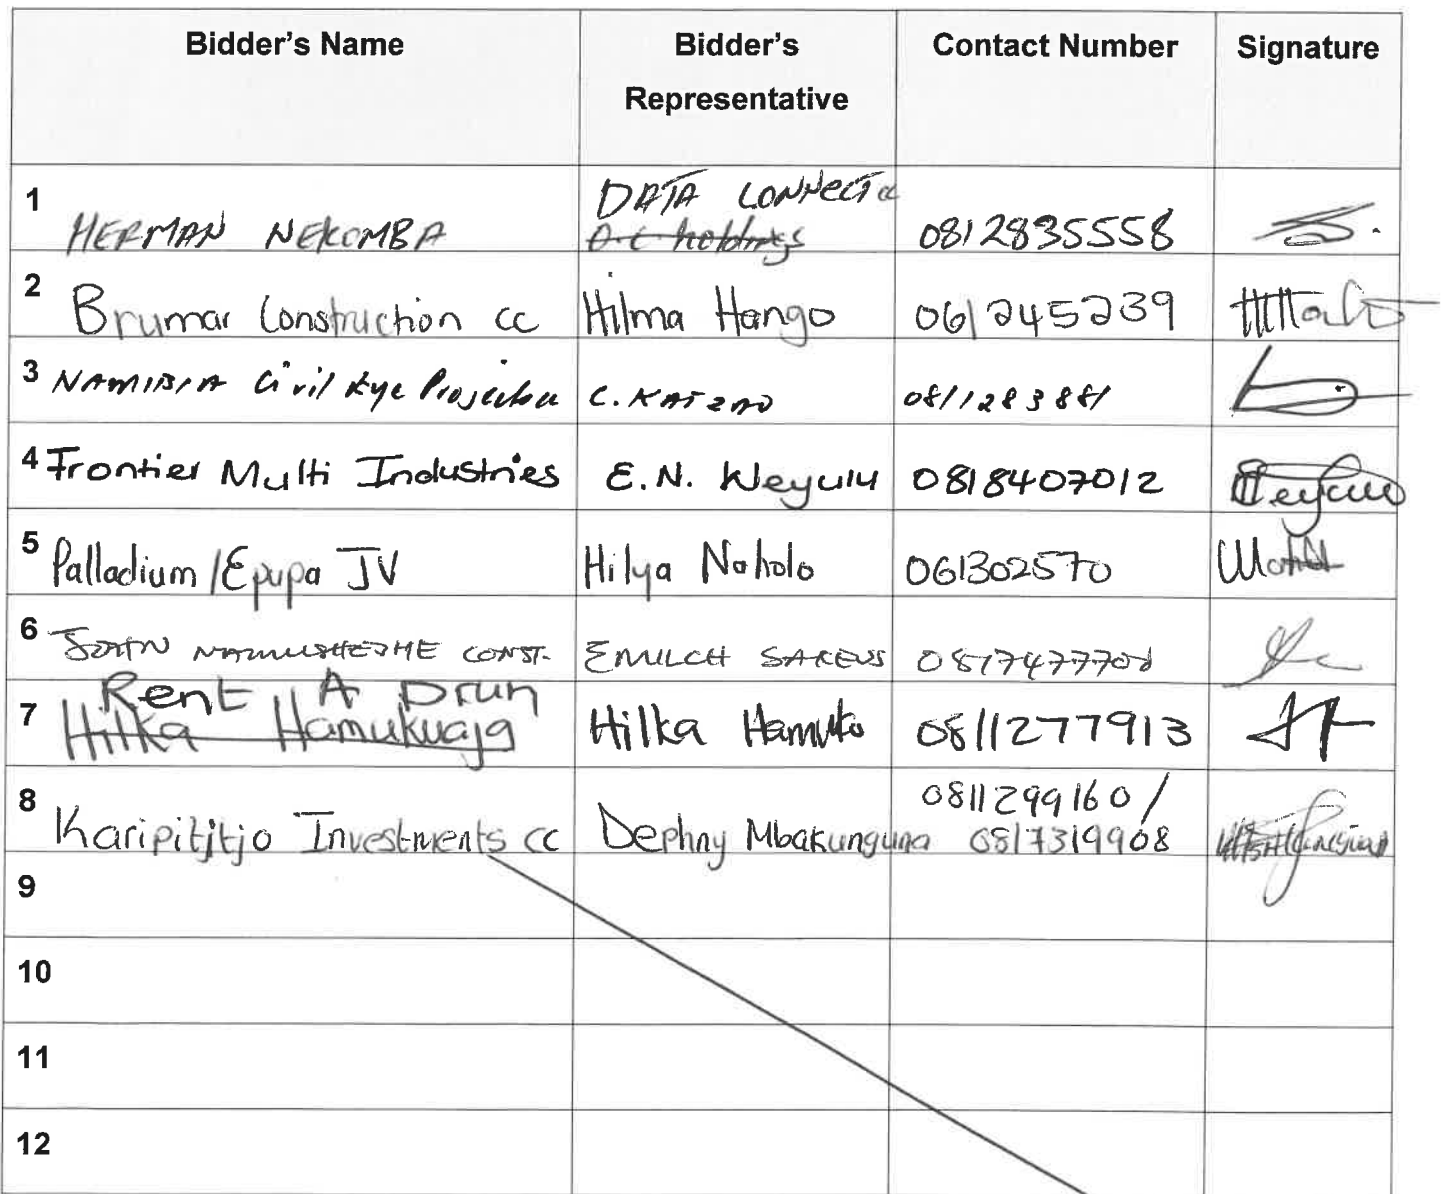 Bidder's Name Bidder's Representative Contact Number Signature
1 HERMAN NEKOMBA DATA CONNECT cc 0812835558
O.C holdings
2 Brumar Construction cc Hilma Hango 061245239
3 NAMIBIA Civil Projects C. 0811283881
4 Frontier Multi Industries E.N. Weyulu 0818407012
5 Palladium/Epupa JV Hilya Naholo 061302570
6 JOHN CONST. EMILCH SAKEUS
7 Rent A Drum Hilka Hamuko 0811277913
Hilka Hamukuaja
8 Karipititjo Investments cc Dephny Mbakunguna 0811299160/
0817319908
9
10
11
12